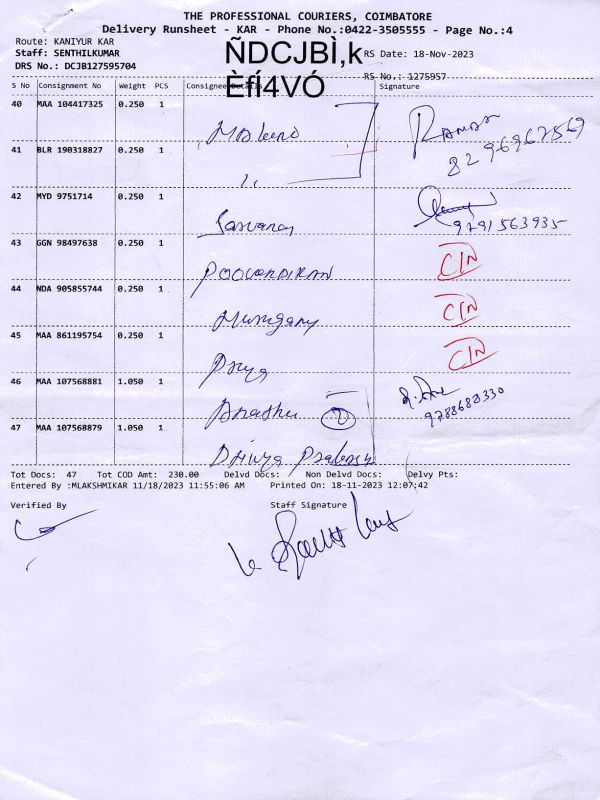 THE PROFESSIONAL COURIERS, COIMBATORE
Delivery Runsheet - KAR - Phone No.:0422-3505555 - Page No.:4
Route: KANIYUR KAR
Staff: SENTHILKUMAR RS Date: 18-Nov-2023
ÑDCJBÌ,k
DRS No.: DCJB127595704 RS No.: 1275957
ÈfÍ4VÓ
S No Consignment No Weight PCS Consignee Details Signature
40 MAA 104417325 0.250 1
41 BLR 190318827 0.250 1
8296967569
42 MYD 9751714 0.250 1
Saravanan 9791563935
43 GGN 98497638 0.250 1 CIN
POOVENDIRAN
44 NDA 905855744 0.250 1 CIN
Murugan
45 MAA 861195754 0.250 1 CIN
Priya
46 MAA 107568881 1.050 1
2 9788688330
47 MAA 107568879 1.050 1
Dhivya
Tot Docs: 47 Tot COD Amt: 230.00 Delvd Docs: Non Delvd Docs: Delvy Pts:
Entered By :MLAKSHMIKAR 11/18/2023 11:55:06 AM Printed On: 18-11-2023 12:07:42
Verified By Staff Signature